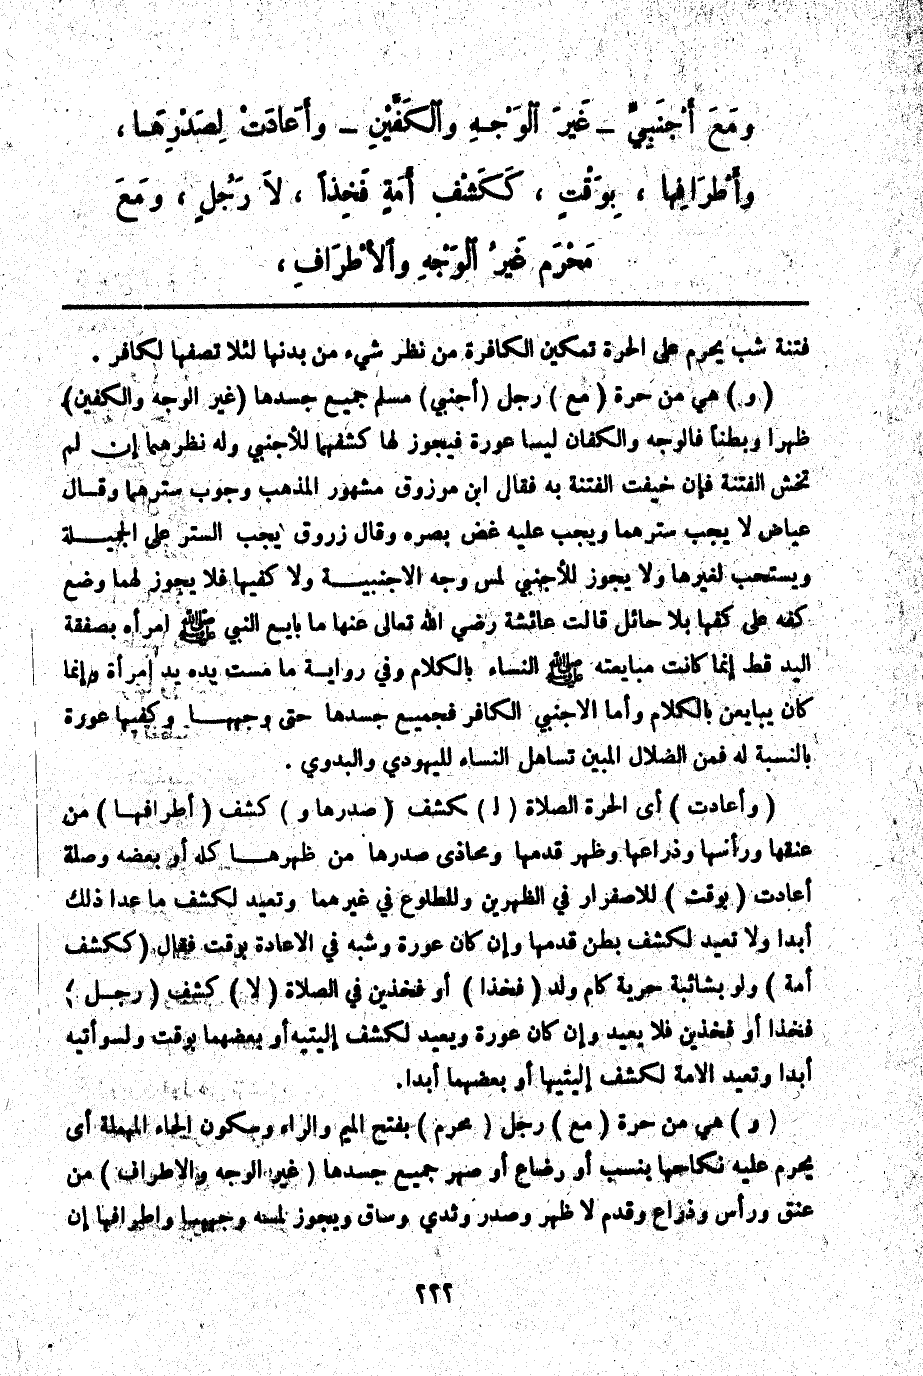 ومَعَ أجْنَبيٍّ – غَيرَ الوَجْهِ والكَفَّيْنِ – وأعادَتْ لِصَدْرِهَا،
وأَطْرَافِها ، بِوَقْتٍ ، كَكَشْفِ أَمَةٍ فَخِذاً ، لاَ رَجُلٍ ، ومَعَ
مَحْرَمٍ غَيرُ الوَجْهِ والأطْرَافِ ،
فتنة شب يحرم على الحرة تمكين الكافرة من نظر شيء من بدنها لئلا تصفها لكافر .
( و ) هي من حرة ( مع ) رجل ( أجنبي ) مسلم جميع جسدها ( غير الوجه والكفين )
ظهرا وبطناً فالوجه والكفان ليسا عورة فيجوز لها كشفهما للأجنبي وله نظرهما إن لم
تخش الفتنة فإن خيفت الفتنة به فقال ابن مرزوق مشهور المذهب وجوب سترهما وقال
عياض لا يجب سترهما ويجب عليه غض بصره وقال زروق يجب الستر على الجميلة
ويستحب لغيرها ولا يجوز للأجنبي لمس وجه الاجنبية ولا كفيها فلا يجوز لهما وضع
كفه على كفها بلا حائل قالت عائشة رضي الله تعالى عنها ما بايع النبي ﷺ امرأه بصفقة
اليد قط إنما كانت مبايعته ﷺ النساء بالكلام وفي رواية ما مست يده يد إمرأة وإنما
كان يبايعن بالكلام وأما الاجنبي الكافر فجميع جسدها حتى وجهها وكفيها عورة
بالنسبة له فمن الضلال المبين تساهل النساء لليهودي والبدوي .
( وأعادت ) أى الحرة الصلاة ( ل ) كشف ( صدرها و ) كشف ( أطرافها ) من
عنقها ورأسها وذراعها وظهر قدمها ومحاذى صدرها من ظهرها كله أو بعضه وصلة
أعادت ( بوقت ) للاصفرار في الظهرين وللطلوع في غيرهما وتعيد لكشف ما عدا ذلك
أبدا ولا تعيد لكشف بطن قدمها وإن كان عورة وشبه في الاعادة بوقت فقال ( ككشف
أمة ) ولو بشائبة حرية كام ولد ( فخذا ) أو فخذين في الصلاة ( لا ) كشف ( رجل )
فخذا أو فخذين فلا يعيد وإن كان عورة ويعيد لكشف إليتيه أو بعضهما بوقت ولسوأتيه
أبدا وتعيد الامة لكشف إليتيها أو بعضهما أبدا.
( و ) هي من حرة ( مع ) رجل ( محرم ) بفتح الميم والراء وسكون الحاء المهملة أى
يحرم عليه نكاحها بنسب أو رضاع أو صهر جميع جسدها ( غير الوجه والاطراف ) من
عنق ورأس وذراع وقدم لا ظهر وصدر وثدي وساق ويجوز لمسه وجهها واطرافها إن
٢٢٢